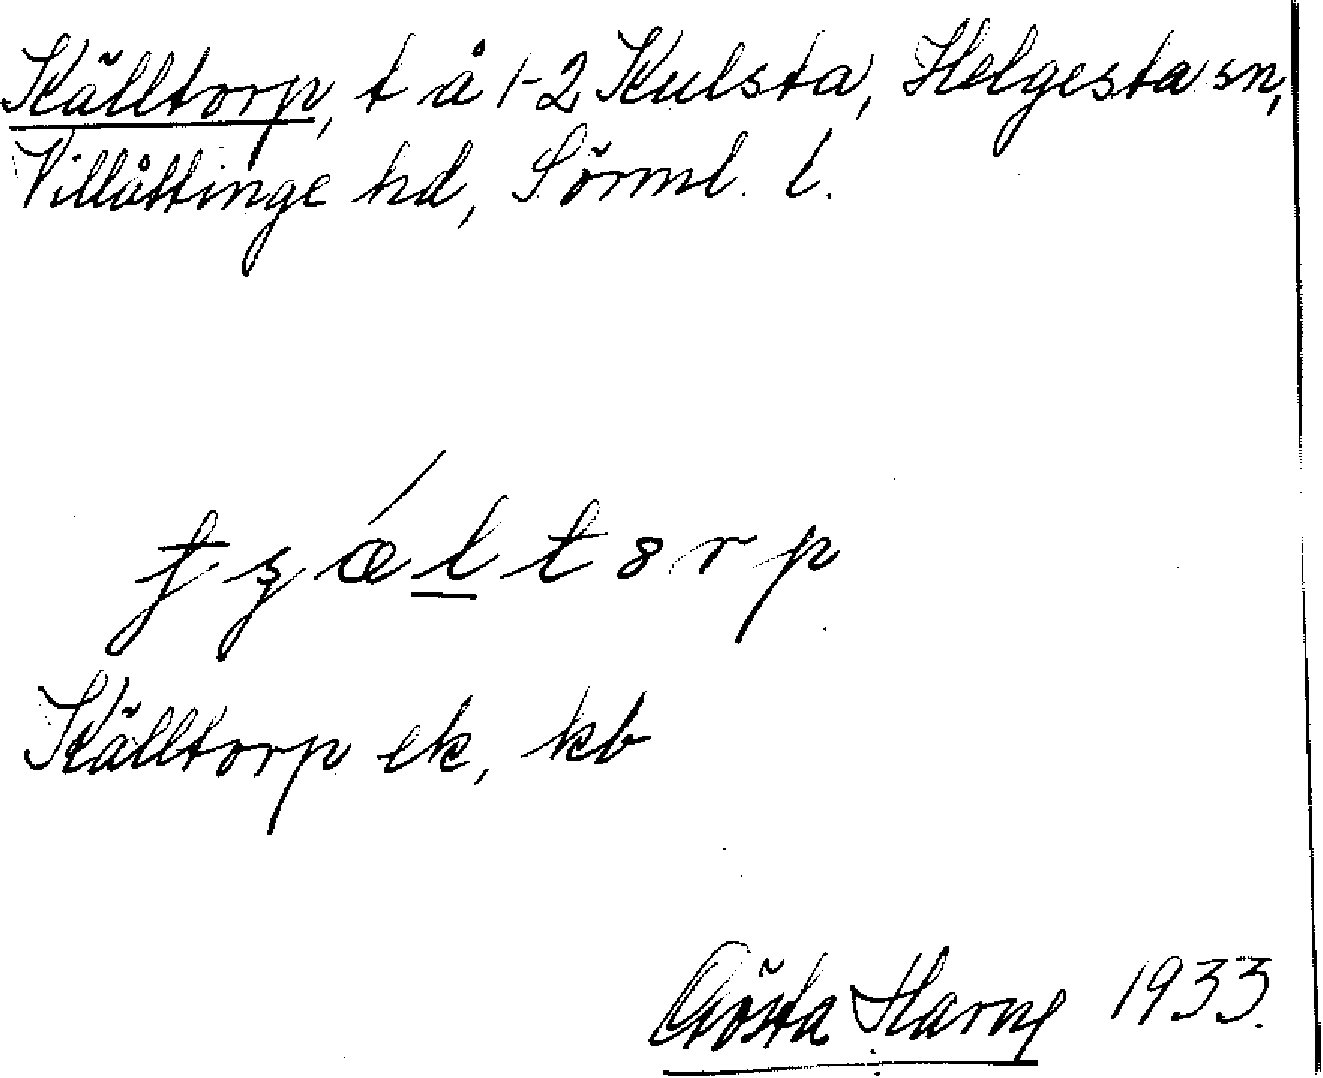 Källtorp, t å 1-2 Kulsta, Helgesta sn,
Villåttinge hd, Sörml. l.
Källtorp ek, kb
Gösta Harng 1933.